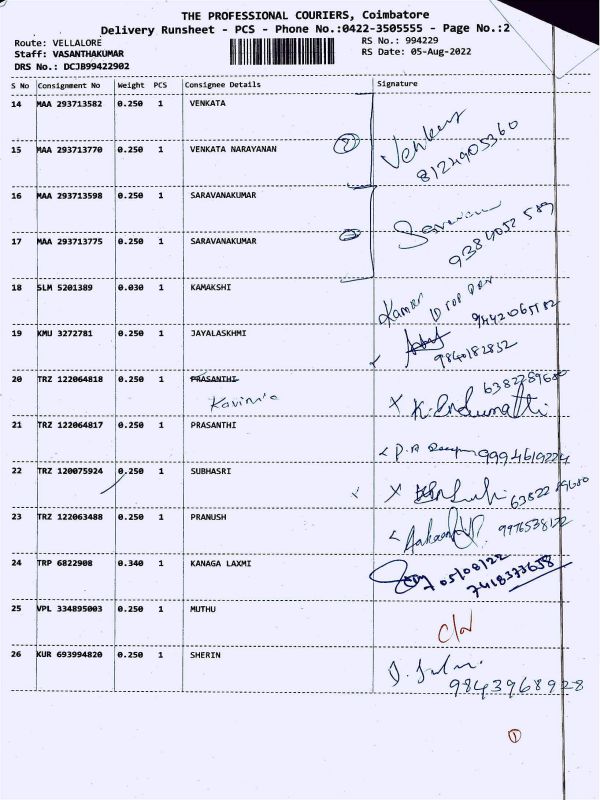 THE PROFESSIONAL COURIERS, Coimbatore
Delivery Runsheet - PCS - Phone No.:0422-3505555 - Page No.:2
Route: VELLALORE RS No.: 994229
Staff: VASANTHAKUMAR RS Date: 05-Aug-2022
DRS No.: DCJB99422902
S No Consignment No Weight PCS Consignee Details Signature
14 MAA 293713582 0.250 1 VENKATA
Venkat
8124905360
15 MAA 293713770 0.250 1 VENKATA NARAYANAN 2
16 MAA 293713598 0.250 1 SARAVANAKUMAR
9384052589
17 MAA 293713775 0.250 1 SARAVANAKUMAR
18 SLM 5201389 0.030 1 KAMAKSHI
19 KMU 3272781 0.250 1 JAYALASKHMI
9840182832
20 TRZ 122064818 0.250 1 PRASANTHI
6382289680
K. Indumathi
21 TRZ 122064817 0.250 1 PRASANTHI
9994619224
22 TRZ 120075924 0.250 1 SUBHASRI
6382289680
23 TRZ 122063488 0.250 1 PRANUSH
24 TRP 6822908 0.340 1 KANAGA LAXMI
05/08/22
7418373658
25 VPL 334895003 0.250 1 MUTHU
26 KUR 693994820 0.250 1 SHERIN
9843968928
1